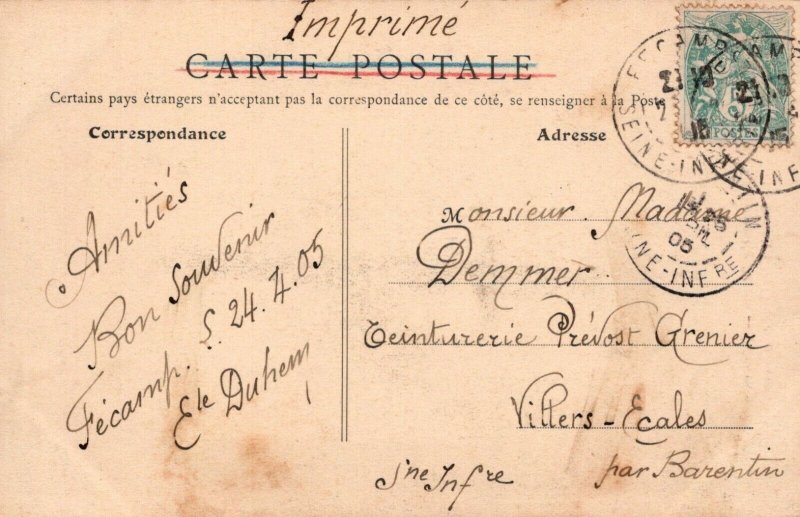 Imprimé
CARTE POSTALE
Certains pays étrangers n'acceptant pas la correspondance de ce côté, se renseigner à la Poste
Correspondance
Adresse
Amitiés
Bon Souvenir
Fécamp. S. 24.4.05
Ele Duhem
Monsieur Madame
Demmer
Teinturerie Prévost Grenier
Villers-Ecales
Sne Infre
par Barentin
FECAMP
SEINE-INF
POSTES
05
NE-INFRE